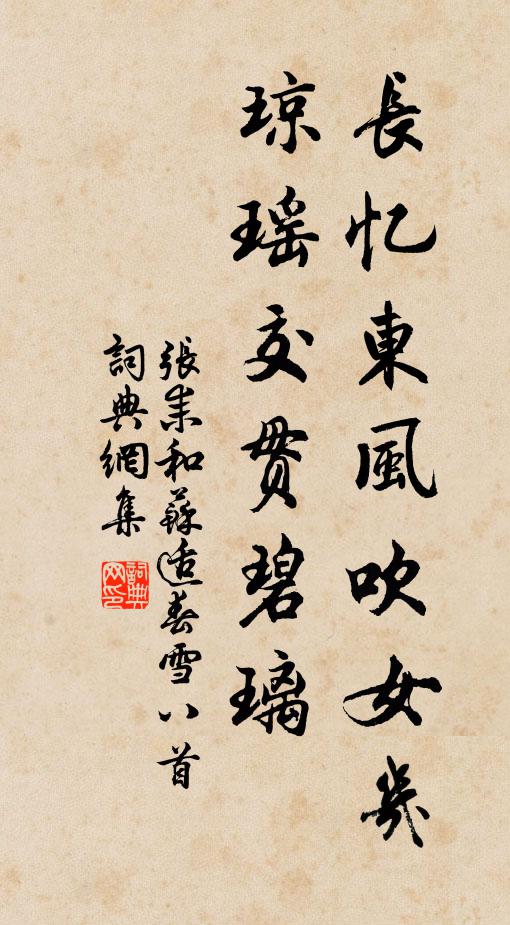 長忆東風吹女幾
琼瑶交贯碧璃
張耒和蘇适春雪八首
詞典網集
詞典网印